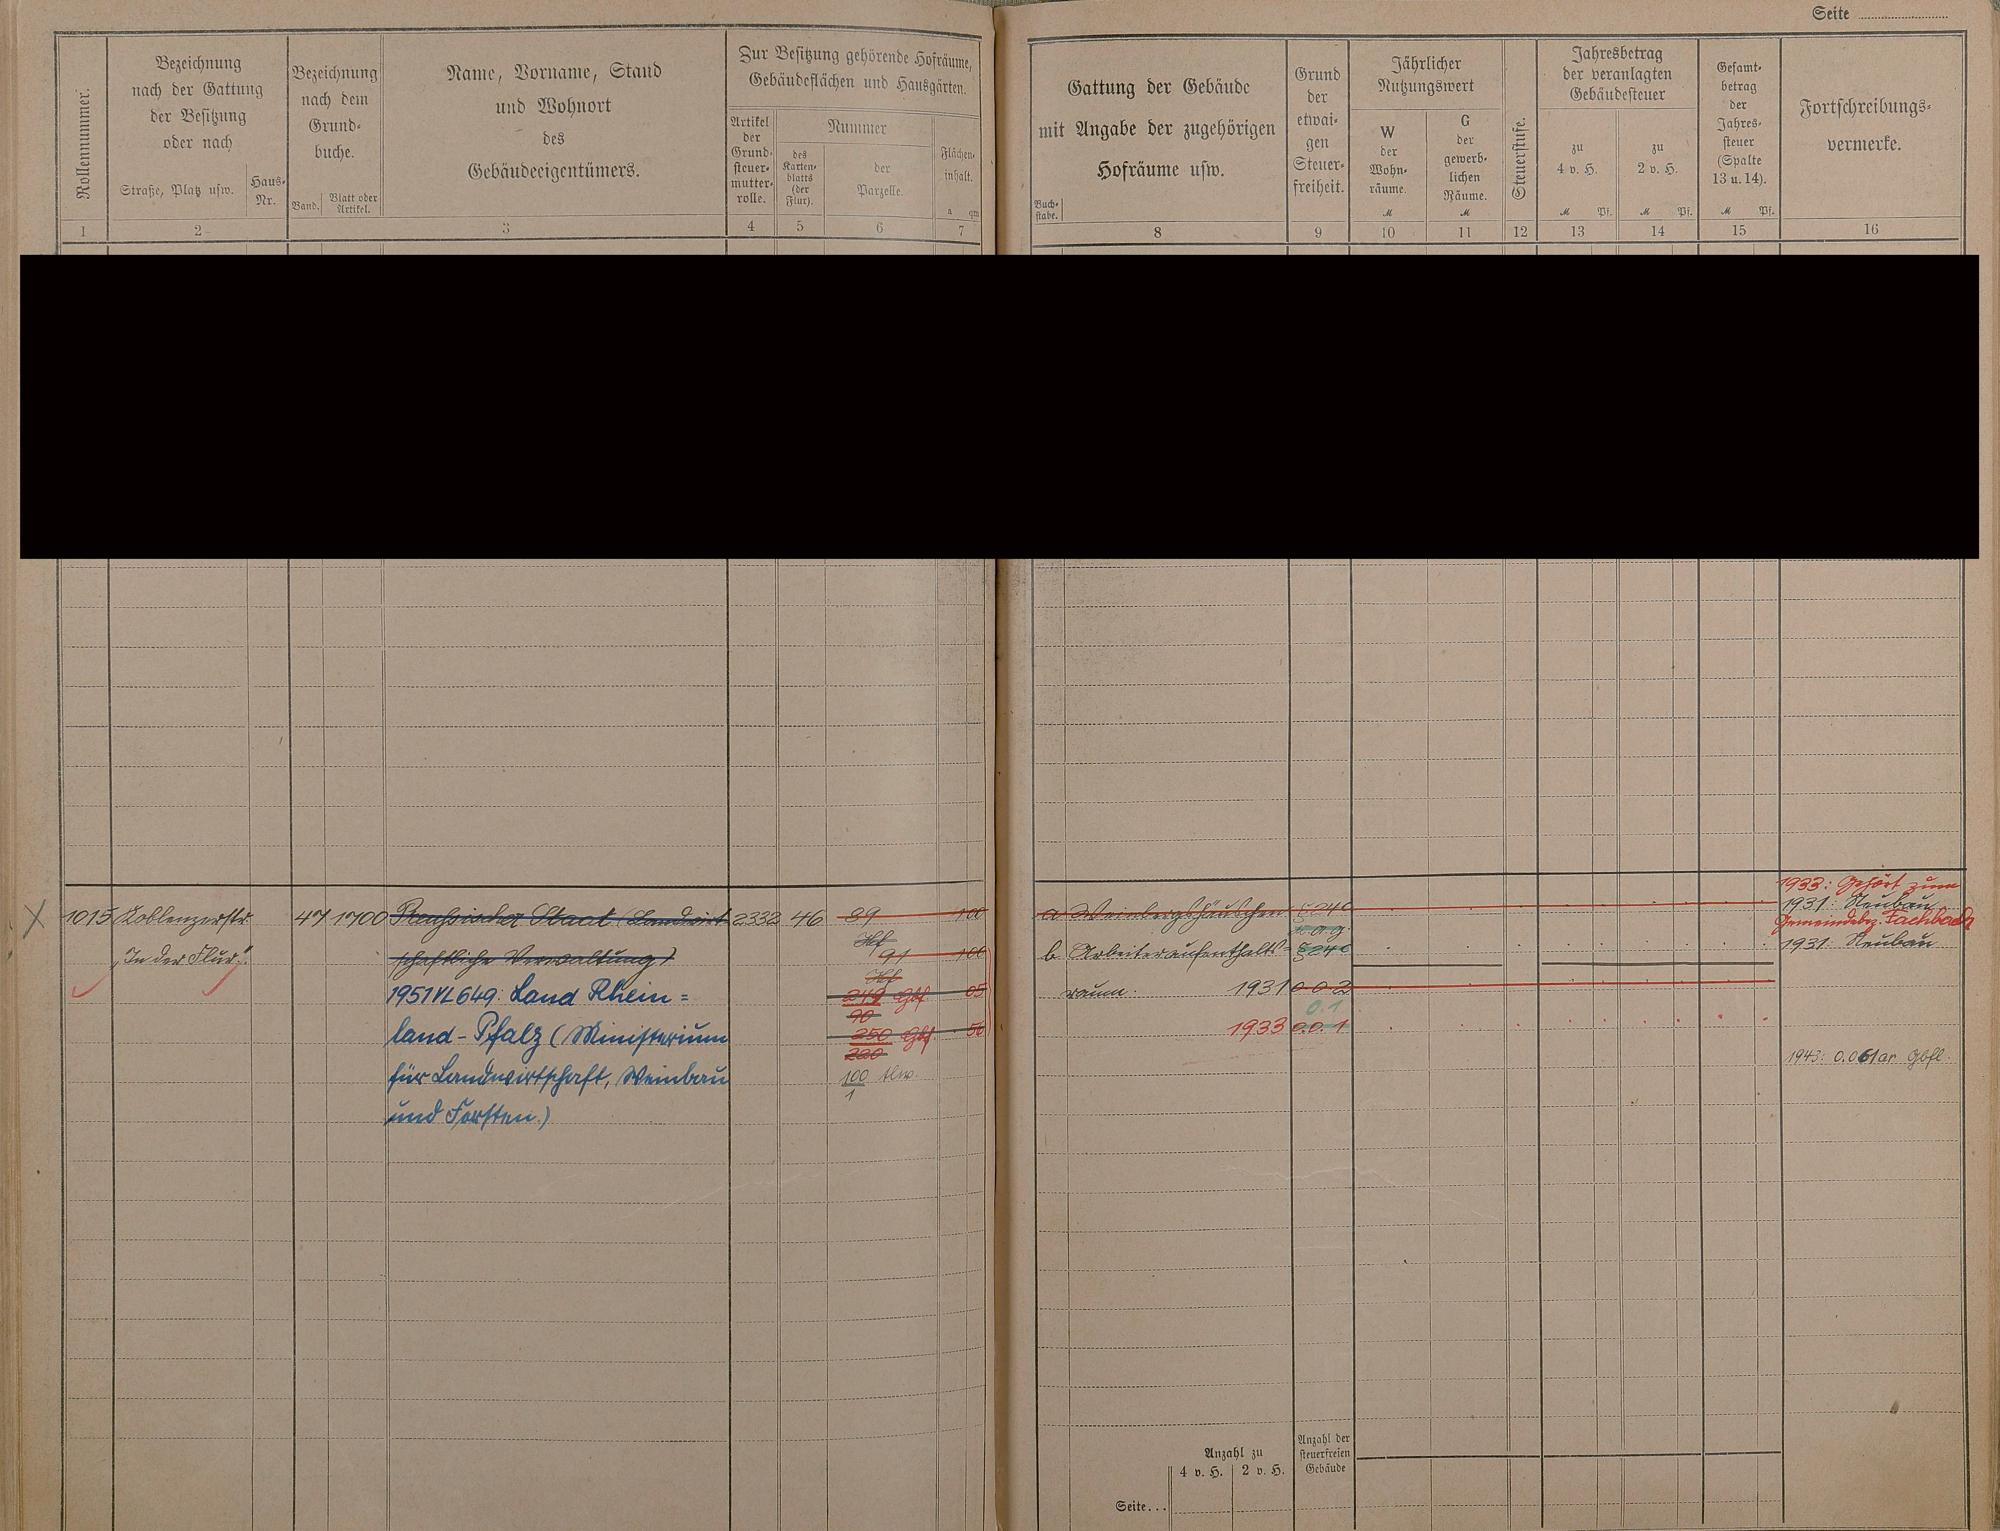 Seite
Rollennummer.
Bezeichnung
nach der Gattung
der Besitzung
oder nach
Straße, Platz usw.
Haus-
Nr.
Bezeichnung
nach dem
Grund-
buche.
Band.
Blatt oder
Artikel.
Name, Vorname, Stand
und Wohnort
des
Gebäudeeigentümers.
Zur Besitzung gehörende Hofräume,
Gebäudeflächen und Hausgärten.
Artikel
der
Grund-
steuer-
mutter-
rolle.
Nummer
des
Karten-
blatts
(der
Flur).
der
Parzelle.
Flächen-
inhalt.
a qm
1 2 3 4 5 6 7
Buch-
stabe.
Gattung der Gebäude
mit Angabe der zugehörigen
Hofräume usw.
Grund
der
etwai-
gen
Steuer-
freiheit.
Jährlicher
Nutzungswert
W
der
Wohn-
räume.
M
G
der
gewerb-
lichen
Räume.
M
Steuerstufe.
Jahresbetrag
der veranlagten
Gebäudesteuer
zu
4 v. H.
M Pf.
zu
2 v. H.
M Pf.
Gesamt-
betrag
der
Jahres-
steuer
(Spalte
13 u. 14).
M Pf.
Fortschreibungs-
vermerke.
8 9 10 11 12 13 14 15 16
1015 Koblenzerstr. 47 1700 Preussischer Staat (Landwirt- 2332 46 89 100
"In der Flur". schaftliche Verwaltung) 91 100
1951 VL 649: Land Rhein=
land-Pfalz (Ministerium
für Landwirtschaft, Weinbau
und Forsten.)
249 Gbf. 05
90
250 Gbf. 56
220
100
1
a Weinbergshäuschen
b Arbeiteraufenthalts=
raum. 1931 0.0.2
0.1.
1933 0.0.1
1933: Gehört zum
1931: Neubau
Gemeindebez. Fachbach
1931: Neubau
1943: 0.061 ar Gbfl.
Anzahl zu
4 v. H. 2 v. H.
Anzahl der
steuerfreien
Gebäude
Seite...